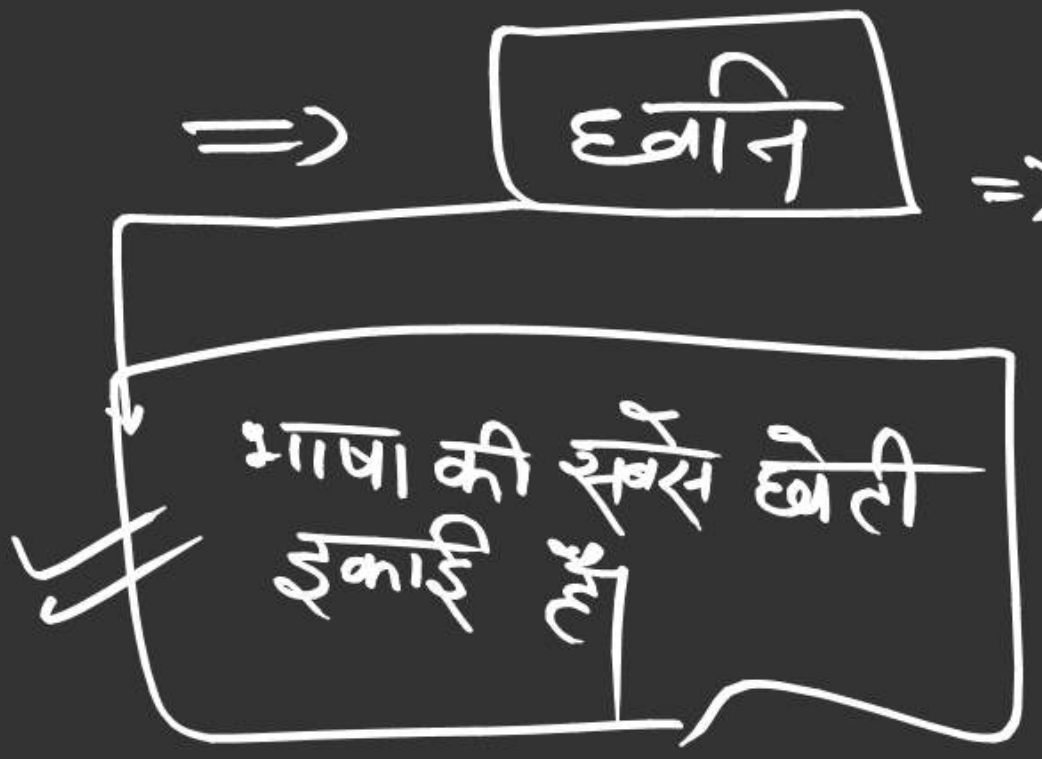 ⇒ ध्वनि ⇒
भाषा की सबसे छोटी
इकाई है।